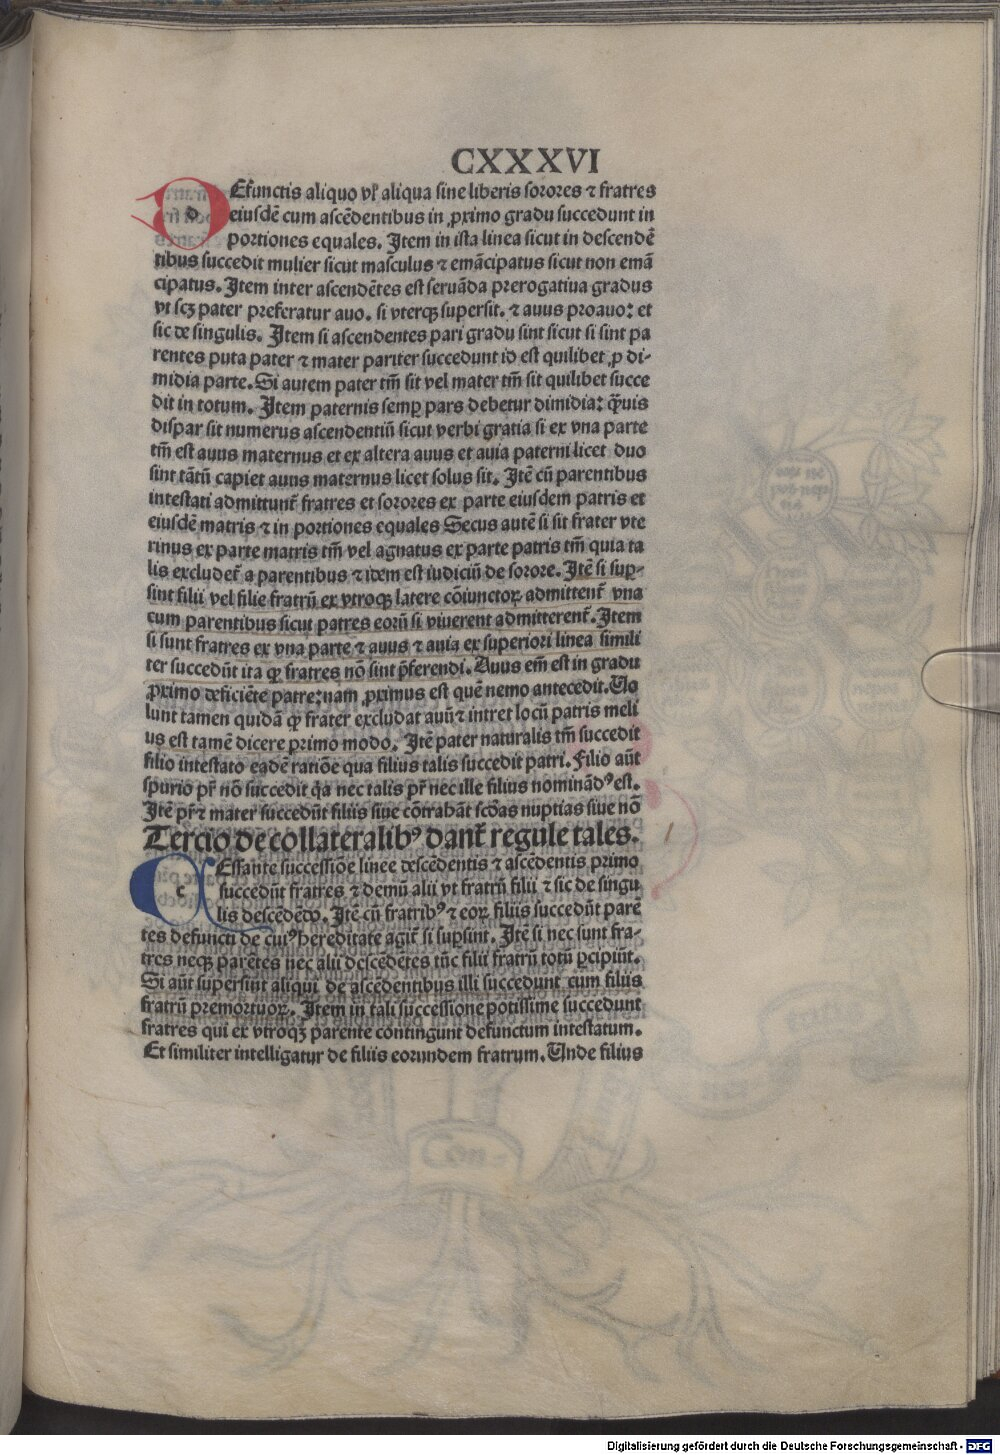 CXXXVI
DEfunctis aliquo vl' aliqua sine liberis sorores ⁊ fratres
eiusdē cum ascēdentibus in ꝓximo gradu succedunt in
portiones equales. Item in ista linea sicut in descendē
tibus succedit mulier sicut masculus ⁊ emācipatus sicut non emā
cipatus. Item inter ascendētes est seruāda prerogatiua gradus
vt scꝫ pater preferatur auo. si vterqꝫ supersit. ⁊ auus proauo: et
sic de singulis. Item si ascendentes pari gradu sint sicut si sint pa
rentes puta pater ⁊ mater pariter succedunt id est quilibet ꝓ di-
midia parte. Si autem pater tm̄ sit vel mater tm̄ sit quilibet succe
dit in totum. Item paternis semꝑ pars debetur dimidia: qͣuis
dispar sit numerus ascendentiū sicut verbi gratia si ex vna parte
tm̄ est auus maternus et ex altera auus et auia paterni licet duo
sint tātū capiet auus maternus licet solus sit. Itē cū parentibus
intestati admittunt̄ fratres et sorores ex parte eiusdem patris et
eiusdē matris ⁊ in portiones equales Secus autē si sit frater vte
rinus ex parte matris tm̄ vel agnatus ex parte patris tm̄ quia ta
lis excludet̄ a parentibus ⁊ idem est iudiciū de sorore. Itē si suꝑ-
sint filii vel filie fratrū ex vtroqꝫ latere cōiunctoꝝ admittent̄ vna
cum parentibus sicut patres eorū si viuerent admitterent̄. Item
si sunt fratres ex vna parte ⁊ auus ⁊ auia ex superiori linea simili
ter succedūt ita ꝙ fratres nō sint p̄ferendi. Auus em̄ est in gradu
ꝓximo deficiēte patre: nam ꝓximus est quē nemo antecedit. Uo
lunt tamen quidā ꝙ frater excludat auū ⁊ intret locū patris meli
us est tamē dicere primo modo. Itē pater naturalis tm̄ succedit
filio intestato eadē ratiōe qua filius talis succedit patri. Filio aūt
spurio pr̄ nō succedit q̄a nec talis pr̄ nec ille filius nominādꝰ est.
Itē pr̄ ⁊ mater succedūt filiis siue cōtrabāt scḋas nuptias siue nō
Tercio de collateralibꝰ dant̄ regule tales.
CEssante successiōe linee descēdentis ⁊ ascēdentis primo
succedūt fratres ⁊ demū alii vt fratrū filii ⁊ sic de singu
lis descēdēdo. Itē cū fratribꝰ ⁊ eoꝝ filiis succedūt parē
tes defuncti de cuiꝰ hereditate agit̄ si suꝑsint. Itē si nec sunt fra-
tres neqꝫ parētes nec alii descēdētes tūc filii fratrū totū ꝑcipiūt.
Si aūt supersint aliqui de ascēdentibus illi succedunt cum filiis
fratrū premortuoꝝ. Item in tali successione potissime succedunt
fratres qui ex vtroqꝫ parente contingunt defunctum intestatum.
Et similiter intelligatur de filiis eorundem fratrum. Unde filius
Digitalisierung gefördert durch die Deutsche Forschungsgemeinschaft - DFG